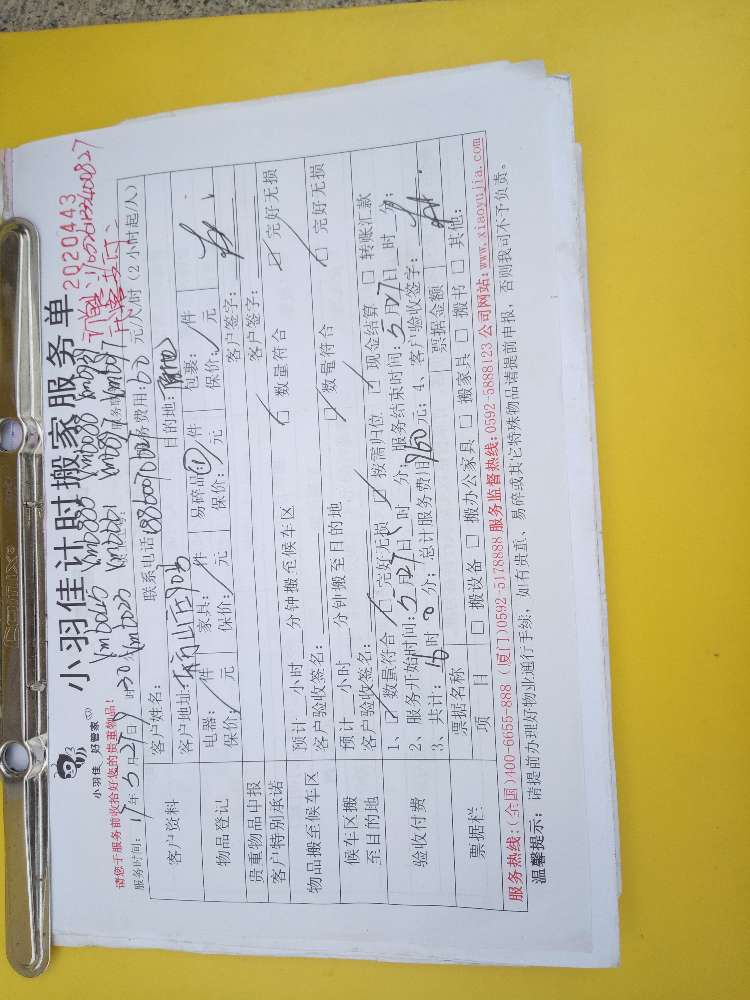 小羽佳计时搬家服务单
2020443
小羽佳 好管家
请您于服务前收拾好您的贵重物品!
服务时间: 17年5月27日 时30
务费用:60元/人/时(2小时起/人)
客户资料
客户姓名: 联系电话
客户地址: 目的地:
物品登记
电器: 件 家具: 件 易碎品: 件 包裹: 件
保价: 元 保价: 元 保价: 元 保价: 元
贵重物品申报 客户签字:
客户特别承诺 客户签字:
物品搬至候车区
预计 小时 分钟搬至候车区
客户验收签名: 数量符合 完好无损
候车区搬至目的地
预计 小时 分钟搬至目的地
客户验收签名: 数量符合 完好无损
验收付费
1、 数量符合 完好无损 按需归位 现金结算 转账汇款
2、服务开始时间:5月27日 时 分; 服务结束时间:5月27日 时 分;
3、共计: 16时0分; 总计服务费用 960元; 4、客户验收签字:
票据栏
票据名称 票据金额
项 目 搬设备 搬办公家具 搬家具 搬书 其他:
服务热线:(全国)400-6655-888 (厦门)0592-5178888 服务监督热线:0592-5888123 公司网站:www.xiaoyujia.com
温馨提示: 请提前办理好物业通行手续,如有贵重、易碎或其它特殊物品请提前申报,否则我司不予负责。